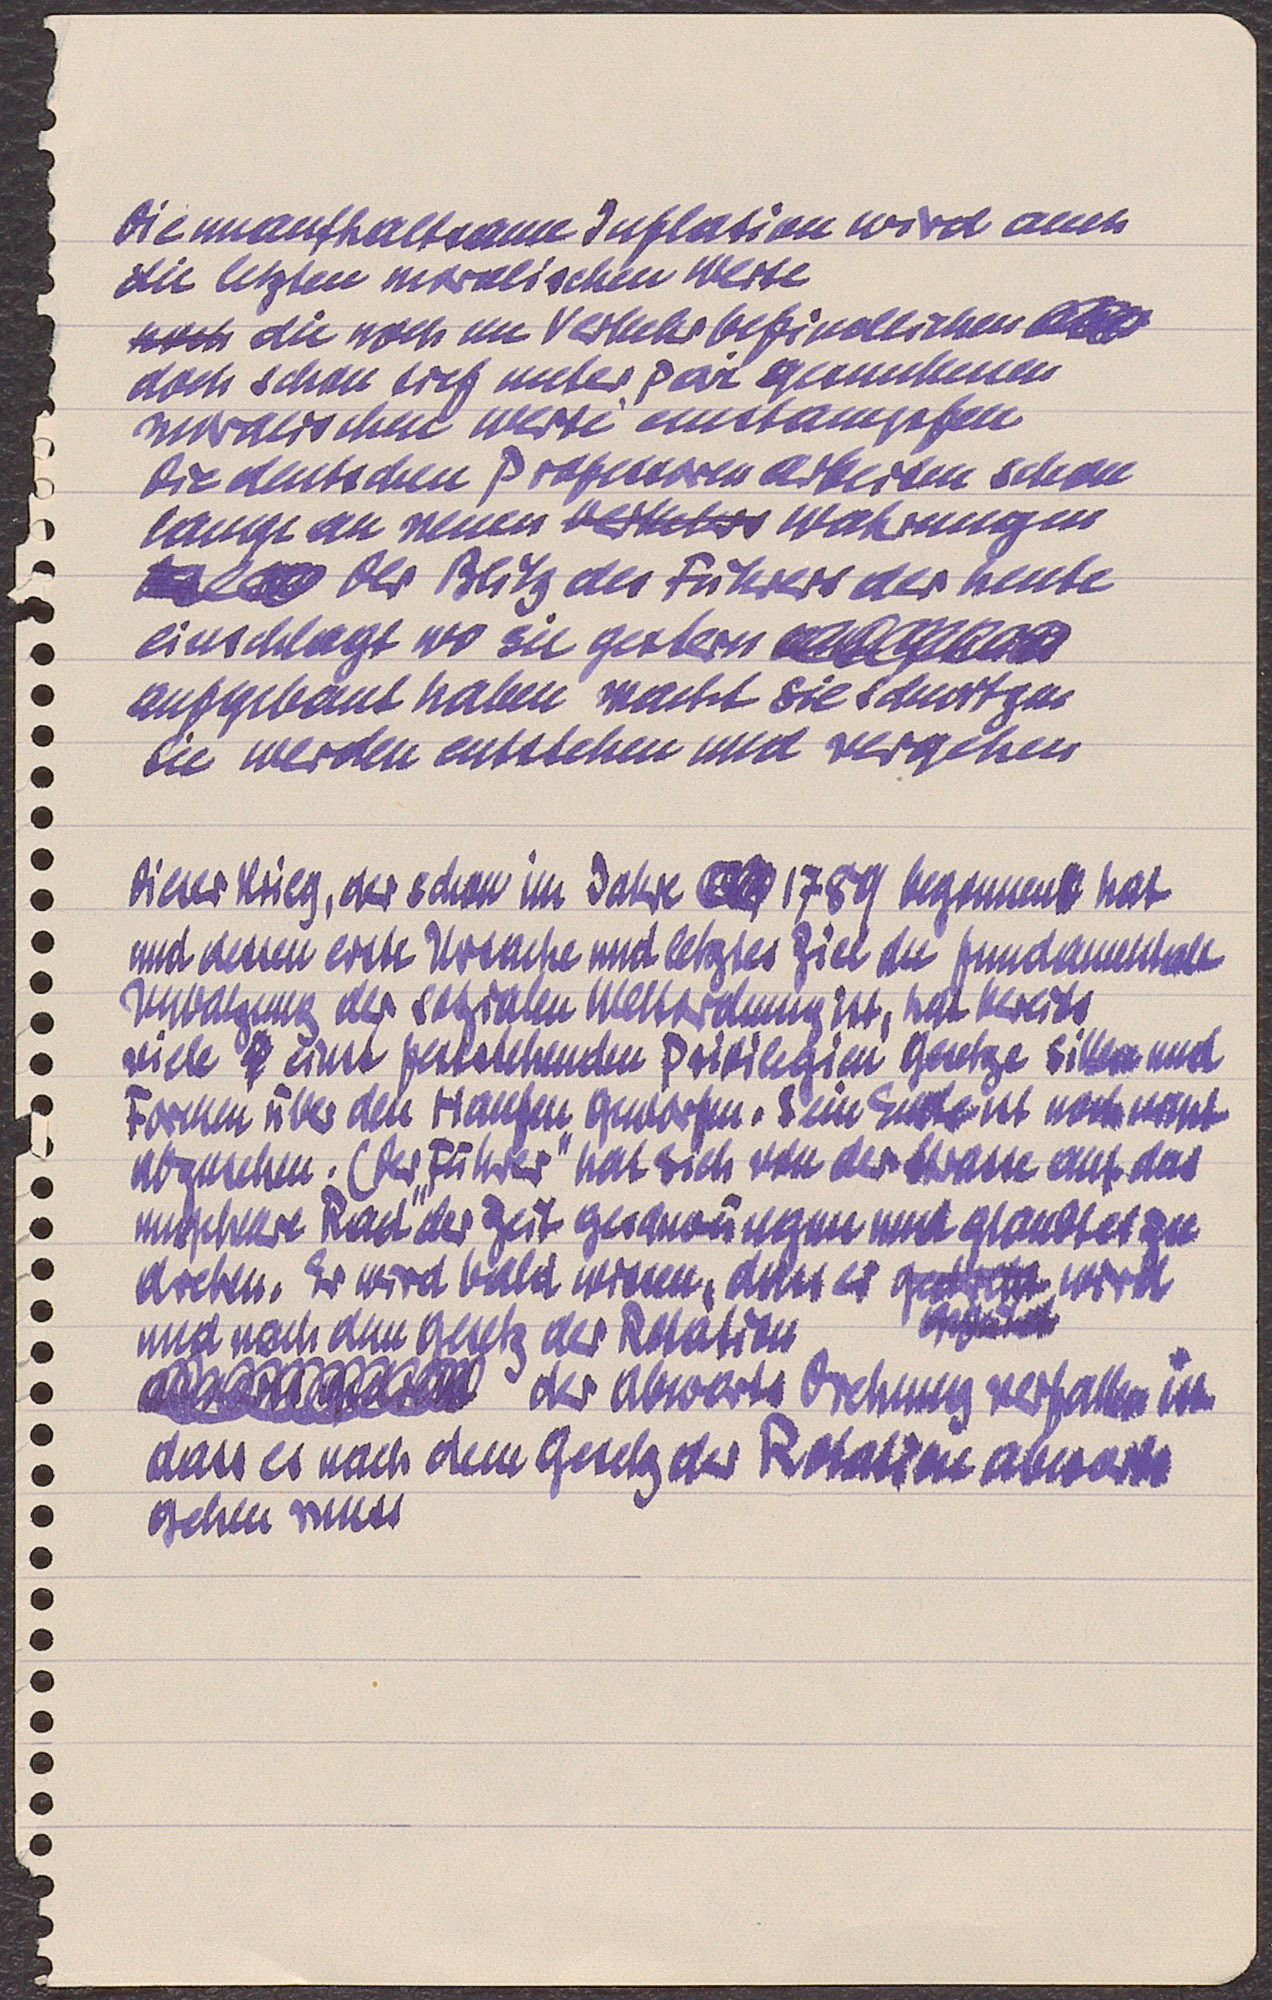 Die unaufhaltsame Inflation wird auch
die letzten moralischen Werte
noch die noch im Verkehr befindlichen
doch schon tief unter pari gesunkenen
moralischen Werte einstampfen
Die deutschen Professoren arbeiten schon
lange an neuen Verkehrs Wahrungen
Der Blitz des Führers der heute
einschlagt wo sie gestern
aufgebaut haben macht sie schwitzen
Sie werden entstehen und vergehen
Dieser Krieg, der schon im Jahre 1789 begonnen hat
und dessen erste Ursache und letztes Ziel die fundamentale
Umwalzung der sozialen Weltordnung ist, hat bereits
viele einst feststehenden Privilegien Gesetze Sitten und
Formen über den Haufen geworfen. Sein Ende ist noch nicht
abzusehen. (Der „Führer" hat sich von der Strasse auf das
Rad der Zeit geschwungen und glaubt es zu
drehen. Er wird bald wissen, dass er gedreht wird
und nach dem Gesetz der Rotation
der Abwarts Drehung verfallen ist
dass es nach dem Gesetz der Rotation abwarts
gehen muss